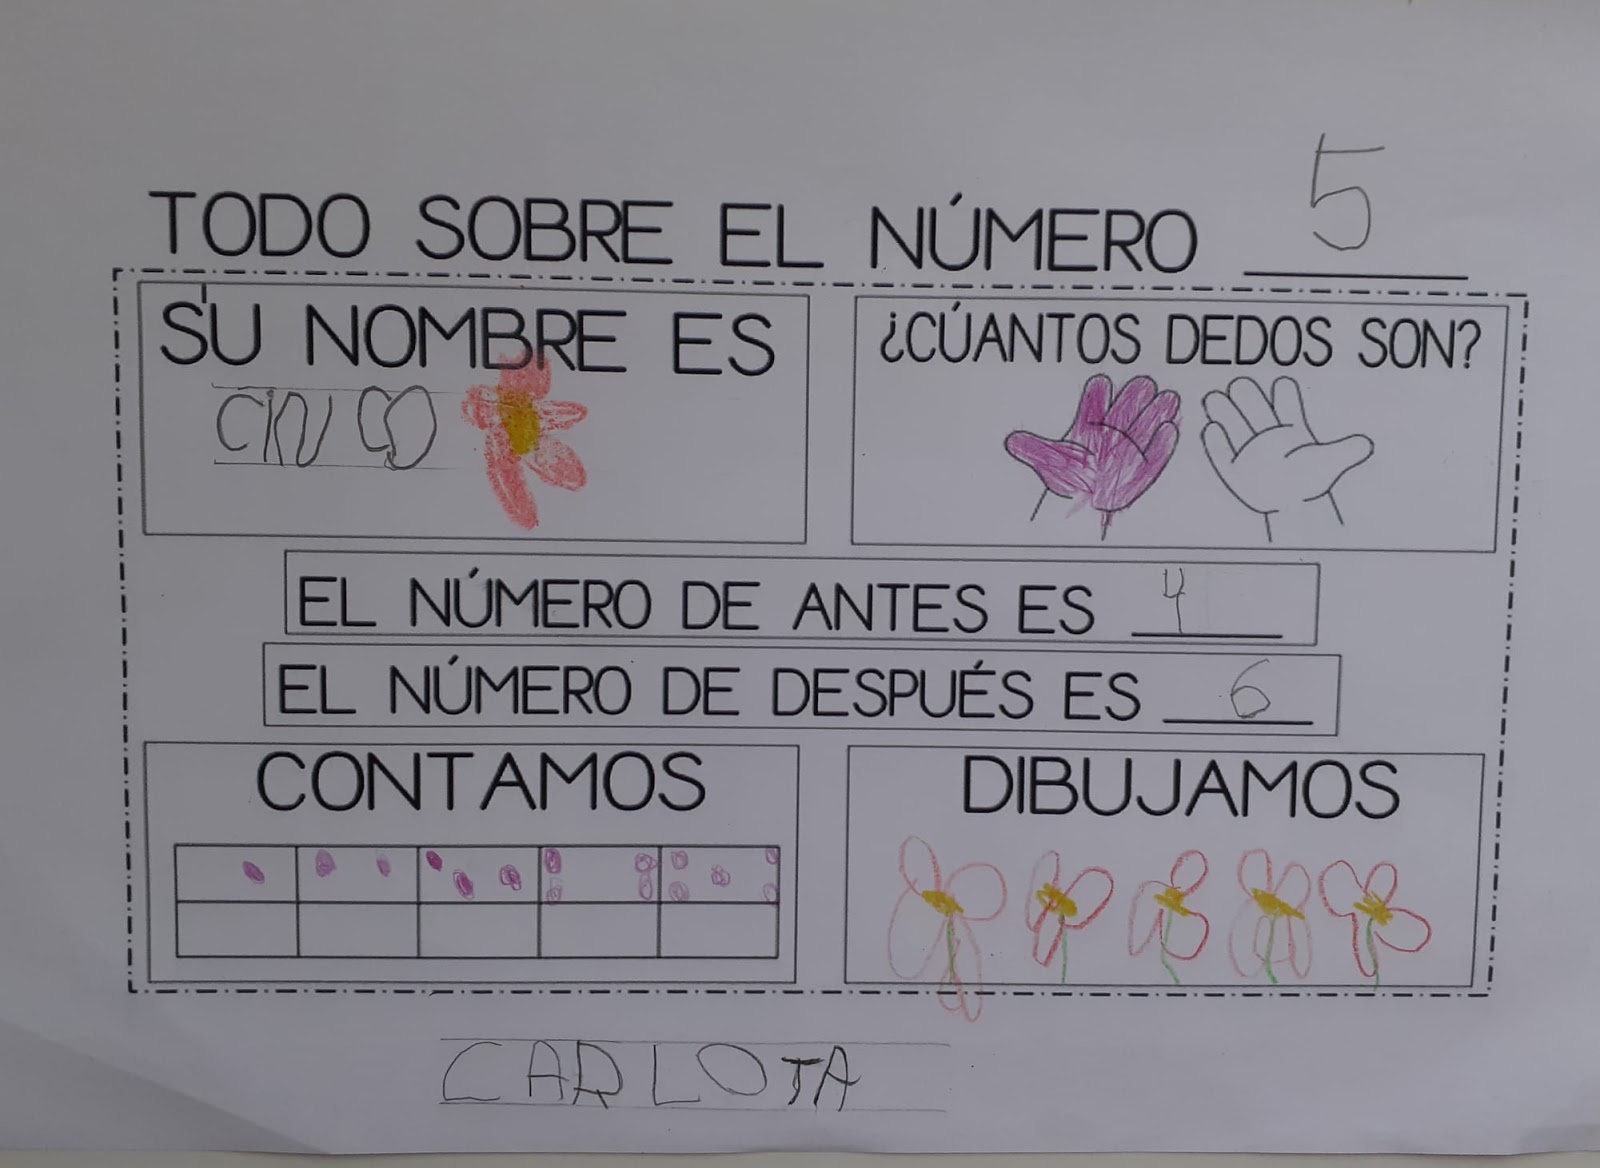 TODO SOBRE EL NÚMERO 5
SU NOMBRE ES
CINCO
¿CÚANTOS DEDOS SON?
EL NÚMERO DE ANTES ES 4
EL NÚMERO DE DESPUÉS ES 6
CONTAMOS
DIBUJAMOS
CARLOTA